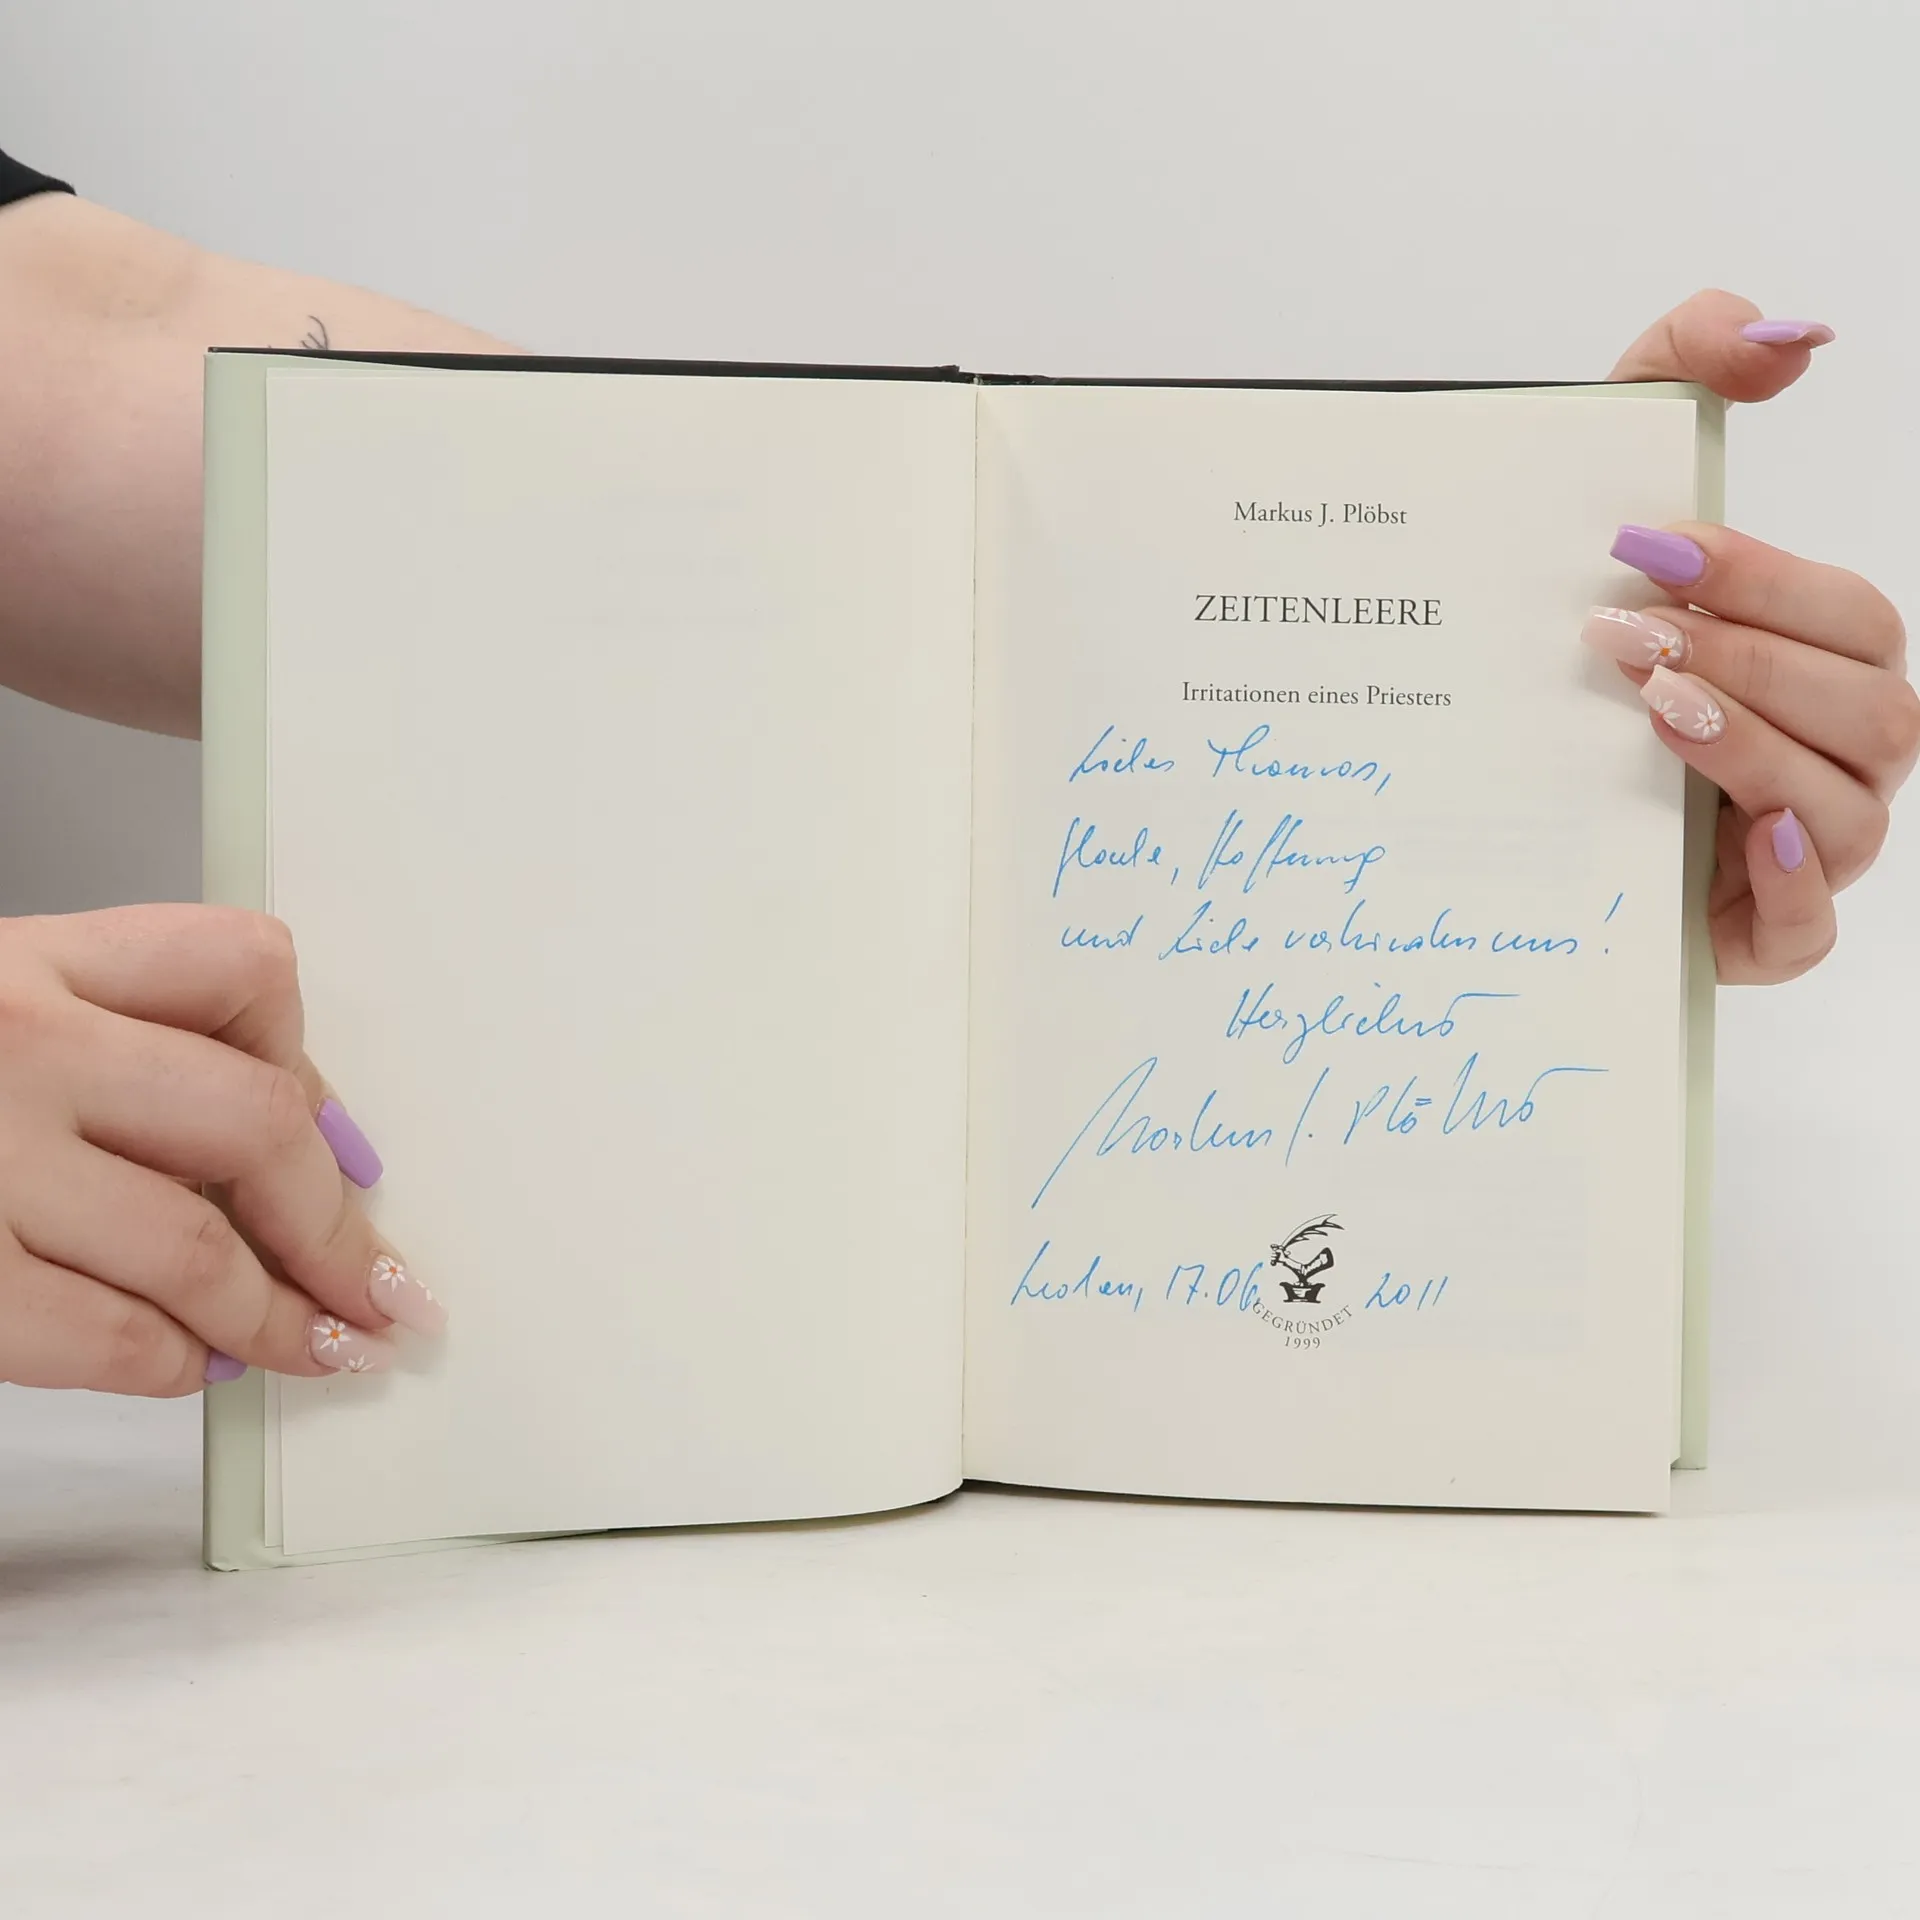 Markus J. Plöbst
ZEITENLEERE
Irritationen eines Priesters
Lieber Thomas,
Glaube, Hoffnung
und Liebe verbinden uns!
Herzlichst
Markus J. Plöbst
Leoben, 17.06. 2011
GEGRÜNDET
1999